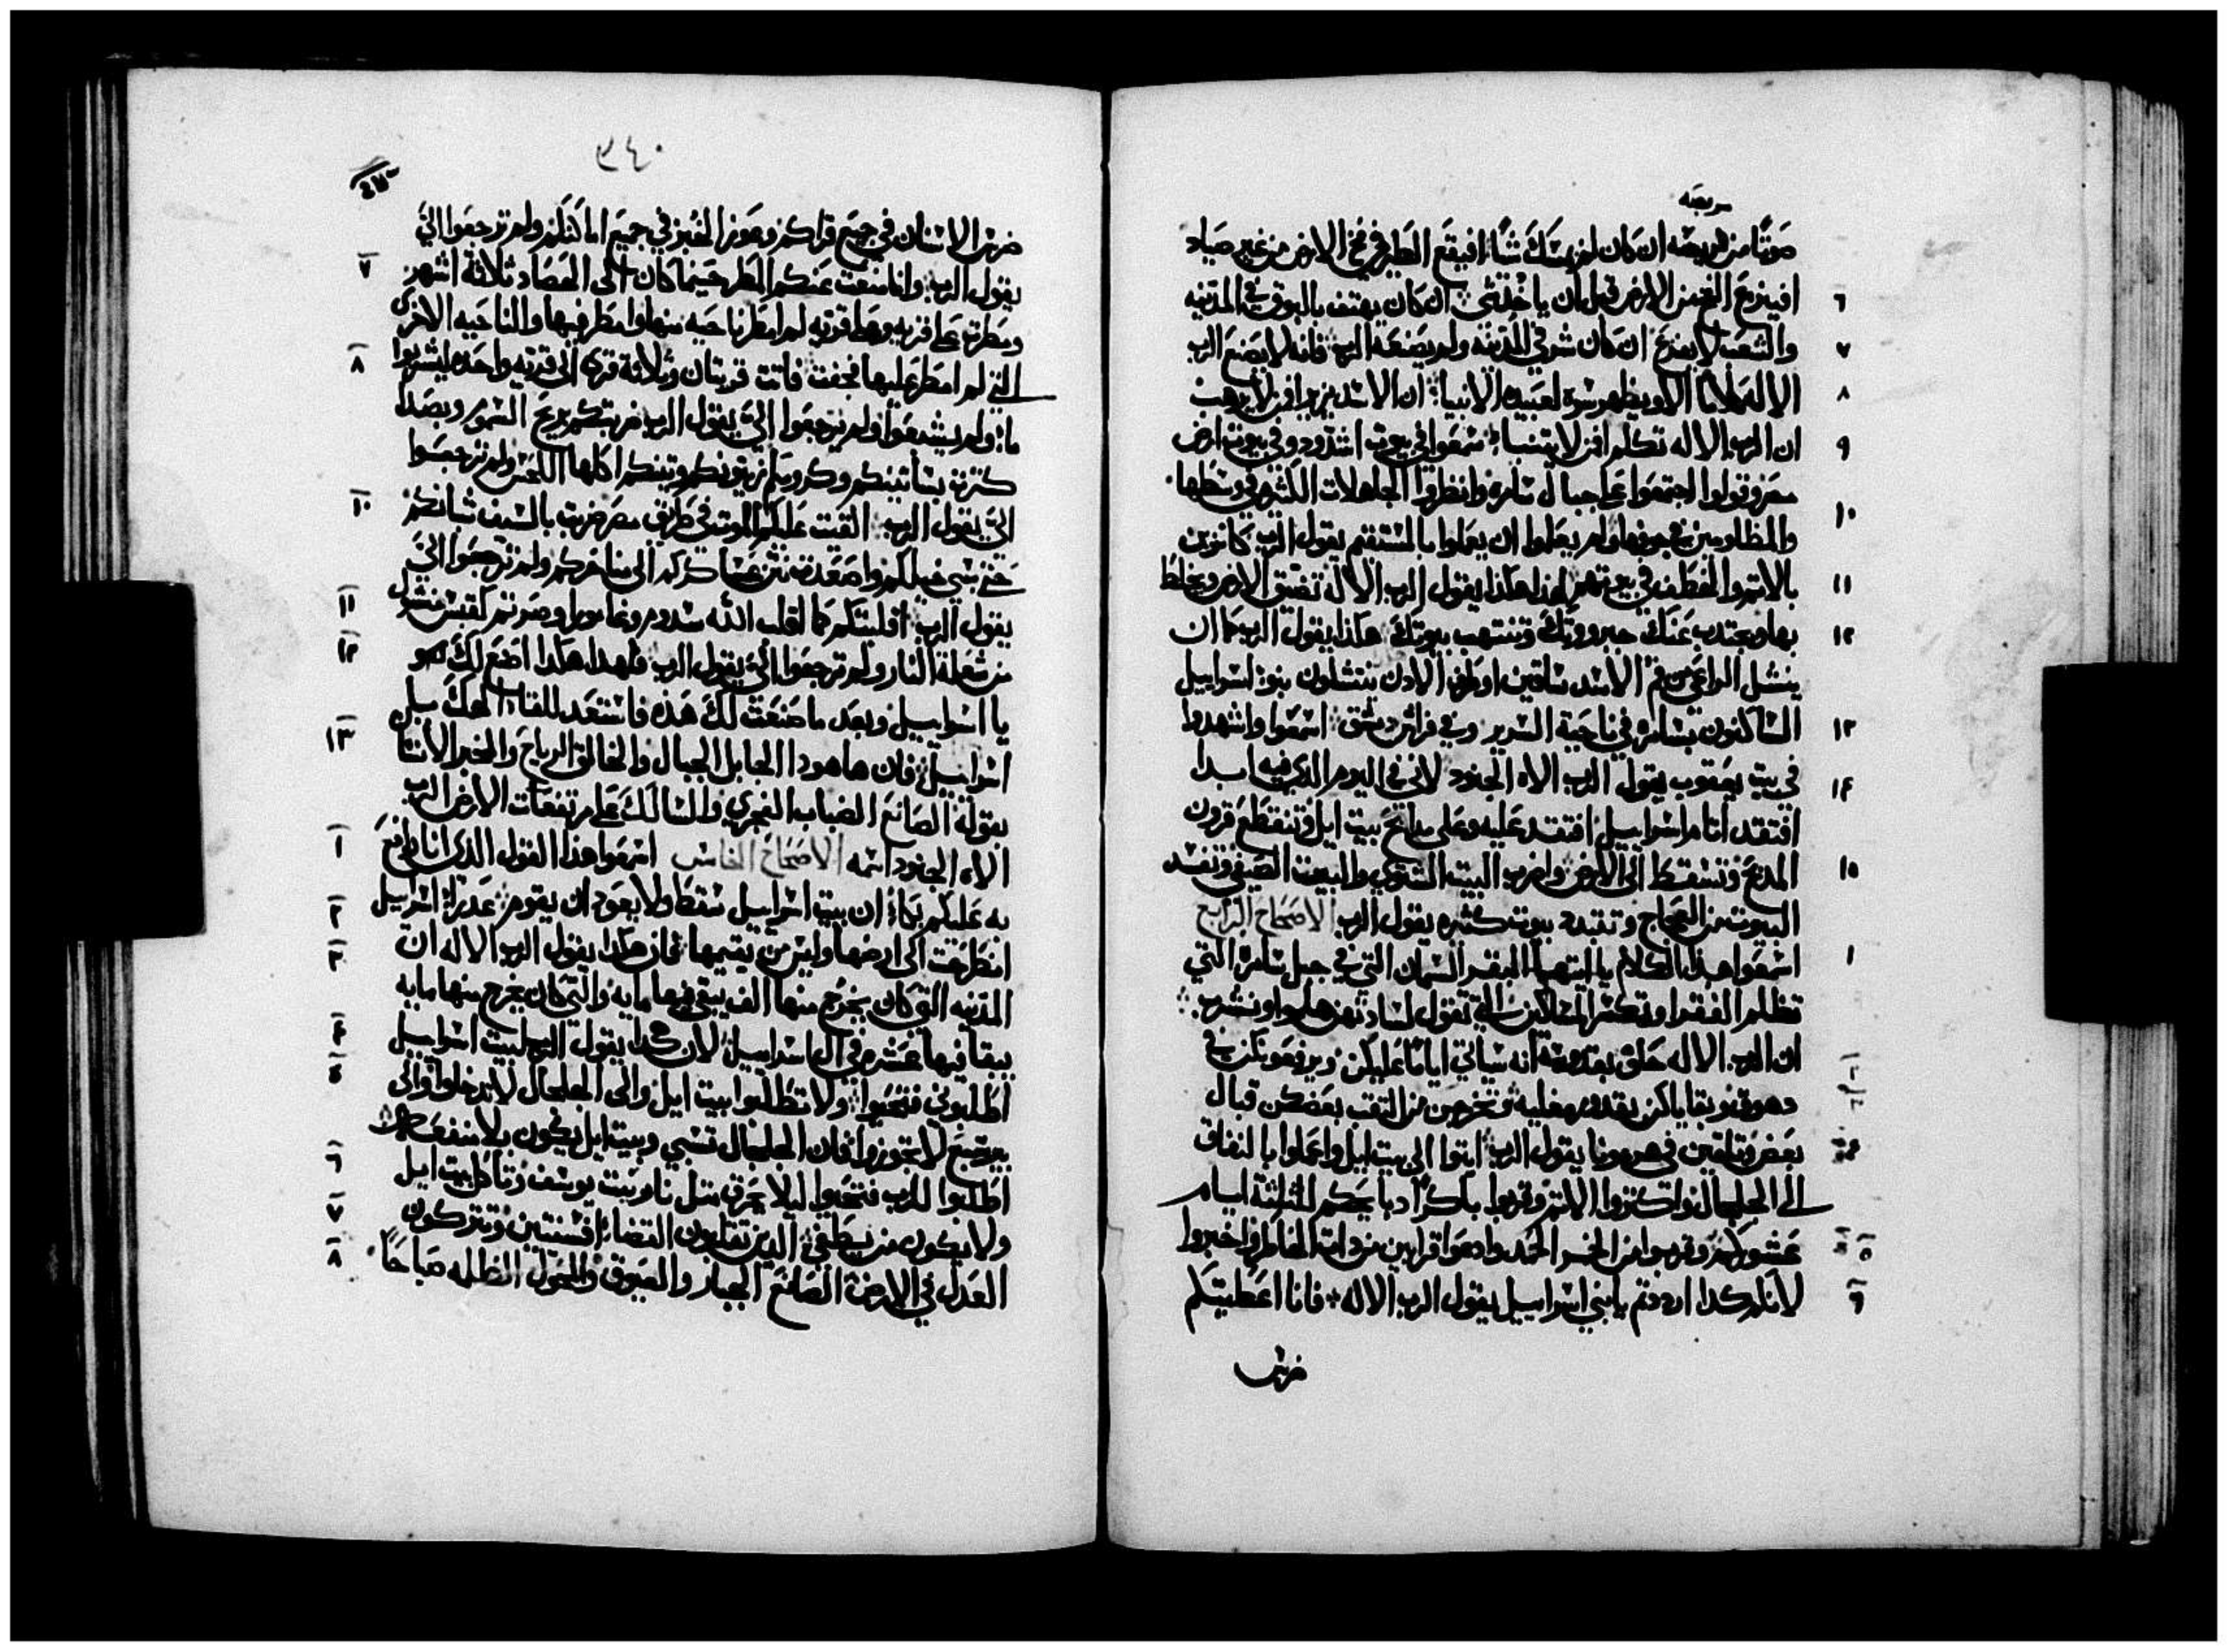 مربضه
صوتًا من مربضه ان كان لم يمسك شيًا افيقع الطير في فخ الارض من غير صياد
افينزع الفخ من الارض قبل ان ياخذ شي ان كان يهتف بالبوق في المدينه ٦
والشعب لا يفزع ان كان شر في المدينه ولم يصنعه الرب فانه لا يصنع الرب ٧
الاله كلامًا الا ويظهر سره لعبيده الانبيا ان الاسد يزير افمن لا يرهب ٨
ان الرب الاله تكلم افمن لا يتنبا سمعوا في بيوت اشدود وفي بيوت ارض ٩
مصر وقولوا اجتمعوا على جبال سامره وانظروا الجاهلات الكثيره في وسطها
والمظلومين في جوفها ولم يعلموا ان يعملوا بالمستقيم يقول الرب كانزين ١٠
بالاثم والخطف في بيوتهم لهذا هكذا يقول الرب الاله تضيق الارض ويحاط ١١
بها ويجتذب عنك جبروتك وتنتهب بيوتك هكذا يقول الرب كما ان ١٢
ينشل الراعي من فم الاسد ساقين او طرف الاذن ينتشلون بنوا اسراييل
الساكنون بسامره في ناحية السرير وفي فراش دمشق اسمعوا واشهدوا ١٣
في بيت يعقوب يقول الرب الاه الجنود لاني في اليوم الذي فيه ابدا ١٤
افتقد اثام اسراييل افتقد عليه وعلى مدابح بيت ايل وتنقطع قرون
المدبح وتسقط الى الارض واضرب البيت الشتوي والبيت الصيفي وتفسد ١٥
البيوت من العجاج وتتبدد بيوت كثيره يقول الرب الاصحاح الرابع
اسمعوا هذا الكلام يا ايتها البقر السمان التي في جبل سامره التي ١
تظلم الفقرا وتكسر المساكين التي تقول لساداتهن هلموا ونشرب
ان الرب الاله حلف بقدوسه انه ستاتي ايامًا عليكن ويرفعونكن في ٢
وبقاياكن بقدور مغليه وتخرجن من النقب بعضكن قبال ٣
بعض وتلقين في هرمون يقول الرب ايتوا الى بيت ايل واعملوا بالنفاق ٤
الى الجلجال واكثروا الاثم وقربوا باكرًا دبايحكم لثلثة ايام
عشوركم وقربوا من الخمير الحمد وادعوا قرابين من دات الخاطر واخبروا ٥
لانكم كدا اردتم يا بني اسراييل يقول الرب الاله فانا اعطيتكم ٦
ضرس
٣٤٠
ضرس الاسنان في جميع قراكم وعوز الخبز في جميع اماكنكم ولم ترجعوا اليّ
يقول الرب وانا منعت عنكم المطر حينما كان الى الحصاد ثلاثة اشهر ٧
ومطرت على قريه وعلى قريه لم امطر ناحيه منها امطر فيها والناحيه الاخرى
التي لم امطر عليها فجفت فاتت قريتان وثلاثة قرى الى قريه واحده ليشربوا ٨
ما ولم يشبعوا ولم ترجعوا اليّ يقول الرب ضربتكم بريح السموم وبصدا
كثرت بساتينكم وكرومكم زيتونكم وتينكم اكلها اللحس ولم ترجعوا
اليّ يقول الرب القيت عليكم الموت في طريق مصر ضربت بالسيف شبانكم ١٠
حتى سبي خيلكم واصعدت نتن عساكركم الى مناخركم ولم ترجعوا اليّ
يقول الرب اقلبتكم كما اقلب الله سدوم وغامورا وصرتم كقبس منشول ١١
من شعلة النار ولم ترجعوا اليّ يقول الرب فلهدا هكدا اصنع لك ١٢
يا اسراييل وبعد ما صنعت لك هذه فاستعد للقا الهك يا
اسراييل فان ها هودا الجابل الجبال والخالق الرياح والمخبر الانسان ١٣
بقوله الصانع الضباب الفجري والسالك على مرتفعات الارض الرب
الاه الجنود اسمه الاصحاح الخامس اسمعوا هذا القول الذي انا رافع ١
به عليكم بكا ان بيت اسراييل سقط ولا يعود ان يقوم عذرا اسراييل ٢
انطرحت الى ارضها وليس من يقيمها فان هكذا يقول الرب الاله ان ٣
المدينه التي كان يخرج منها الف يبقى فيها مايه والتي كان يخرج منها مايه
يبقا فيها عشره في ال اسراييل لان هكدا يقول الرب لبيت اسراييل ٤
اطلبوني فتحيوا ولا تطلبوا بيت ايل والى الجلجال لا تدخلوا والى ٥
بير سبع لا تجوزوا فان الجلجال تسبي وبيت ايل يكون بلا منفعه
اطلبوا للرب فتحيوا ليلا يحرق مثل نار بيت يوسف وتاكل بيت ايل ٦
ولا يكون من يطفي الدين تقلبون القضا افسنتين وتتركون ٧
العدل في الارض الصانع الجبار والعيوق والمحول الظلمه صباحًا ٨